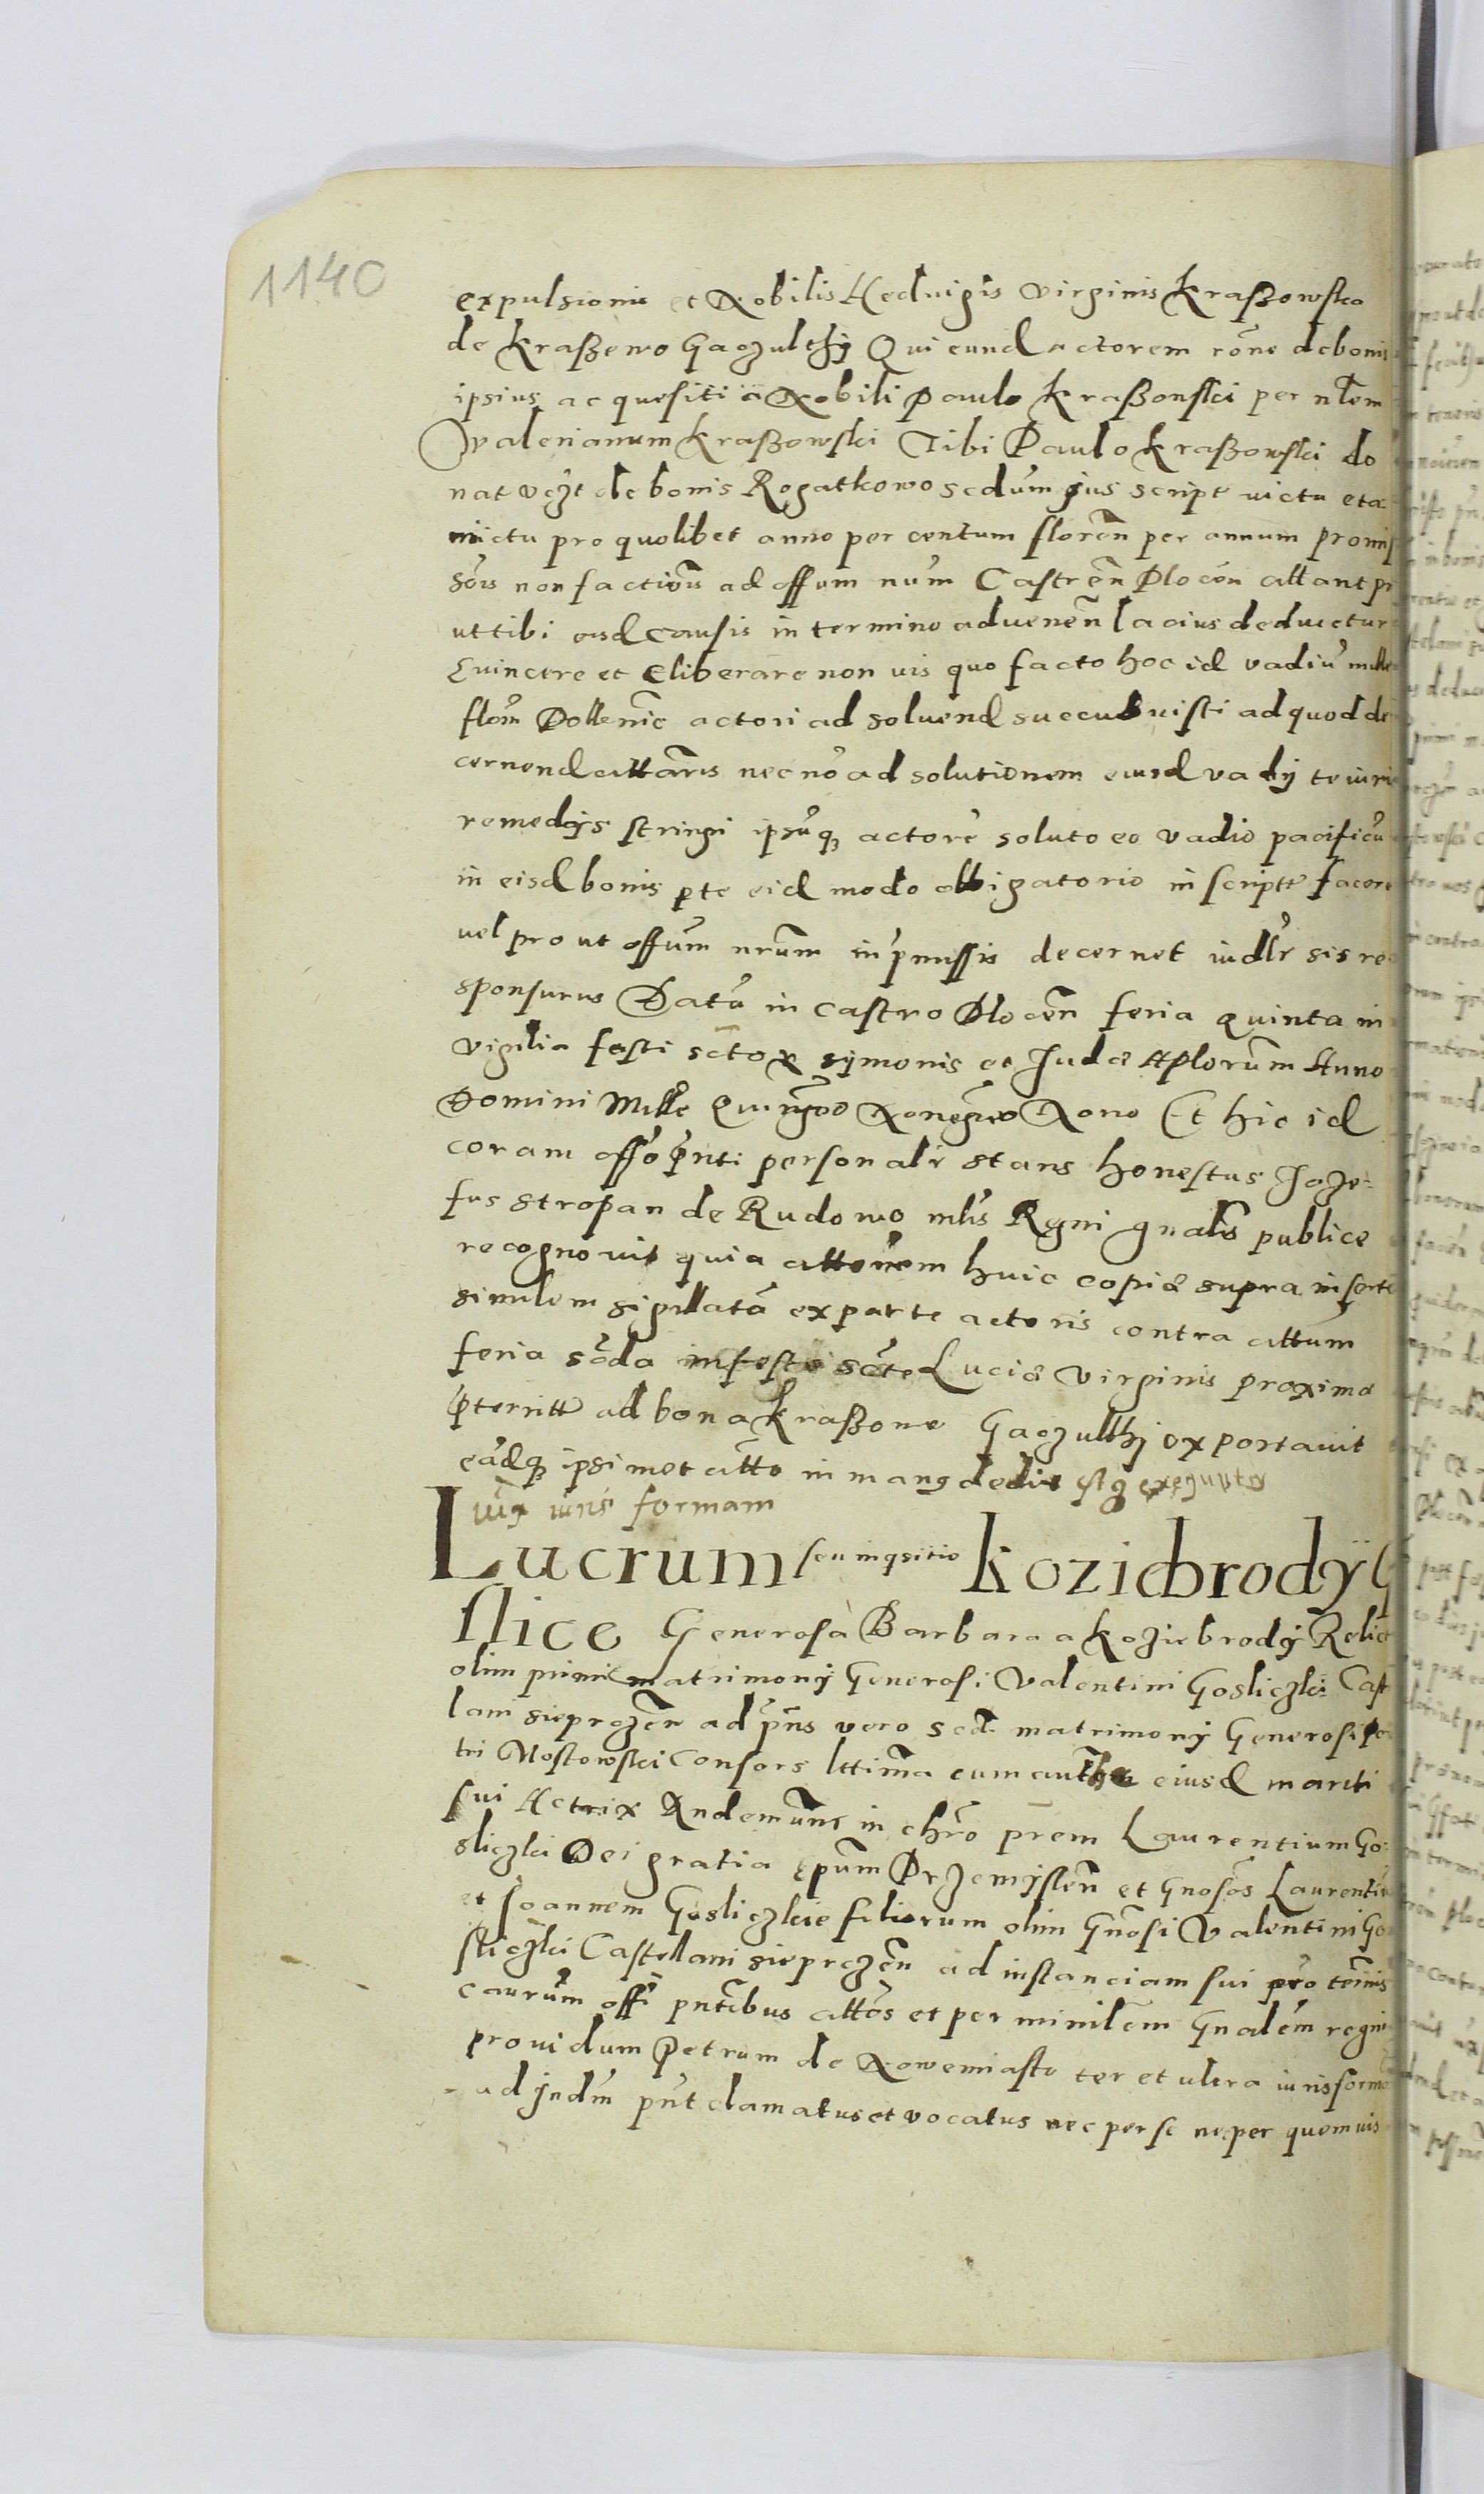 1140
expulsionis et Nobilis Heduigis virginis Kraßowska
de Kraßewo Gaczulthy Qui eund actorem rōne de bonis
ipsius acquesiti a Nobili Paulo Kraßowski per nlem
Valerianum Kraßowski Tibi Paulo Kraßowski do
nat vczt de bonis Rogatkowo sedum jus script victu et a
mictu pro quolibet anno per centum floren per annum promis
sōis non factiōis ad offum nrum Castren Plocen cittant pr
ut tibi eisd causis in termino aduenen lacius deducetur
Euincere et Eliberare non vis quo facto hoc id vadiū mille
flom Pollenic actori ad soluend succubuisti ad quod de
cernend cittaris necnō ad solutionem eiusd vadij te iuris
remedijs stringi ipsūq actorē soluto eo vadio pacificū
in eisd bonis p te eid modo obligatorio inscript facere
vel prout offum nrum in pmissis decernet iudlr sis re
sponsurus Datū in castro Plocen feria Quinta in
vigilia festi sctor Symonis et Judæ Aplorum Anno
Domini Mille Quingōo Nonagēo Nono Et hic id
coram offō pnti personalr stans honestus Joze=
fus Stropan de Rudowo mlis Regni gnalis publice
recognouit quia cittōnem huic copiæ supra inserte
similem sigillatā ex parte actoris contra cittum
feria scda in festo sctæ Luciæ virginis proxime
pteritt ad bona Kraßowo Gaczulthi exportauit
eadq ipsimet citto in manq dedit
iux iuris formam
Lucrum seu inqsitio Koziebrody G
slice Generosa Barbara a Koziebrody Relict
olim primi matrimonij Generosi Valentini Gosliczki Cast
lani Sieprczen ad pns vero scdi matrimonij Generosi Pe
tri Mostowski Consors lttima cum authe eiusd mariti
sui Actrix Rndem in chro prem Laurentium Go=
sliczki Dei gratia epum Przemyslen et Gnosos Laurentiū
et Joannem Gosliczkie filiorum olim Gnosi Valentini Go
sliczki Castellani Sieprczen ad instanciam sui pro temis
caurum offi pntibus cittōs et per minilem Gnalem regni
prouidum Petrum de Nowemiasto ter et ultra iuris forma
ad Judm pnt clamatus et vocatus nec per se ne per quemuis